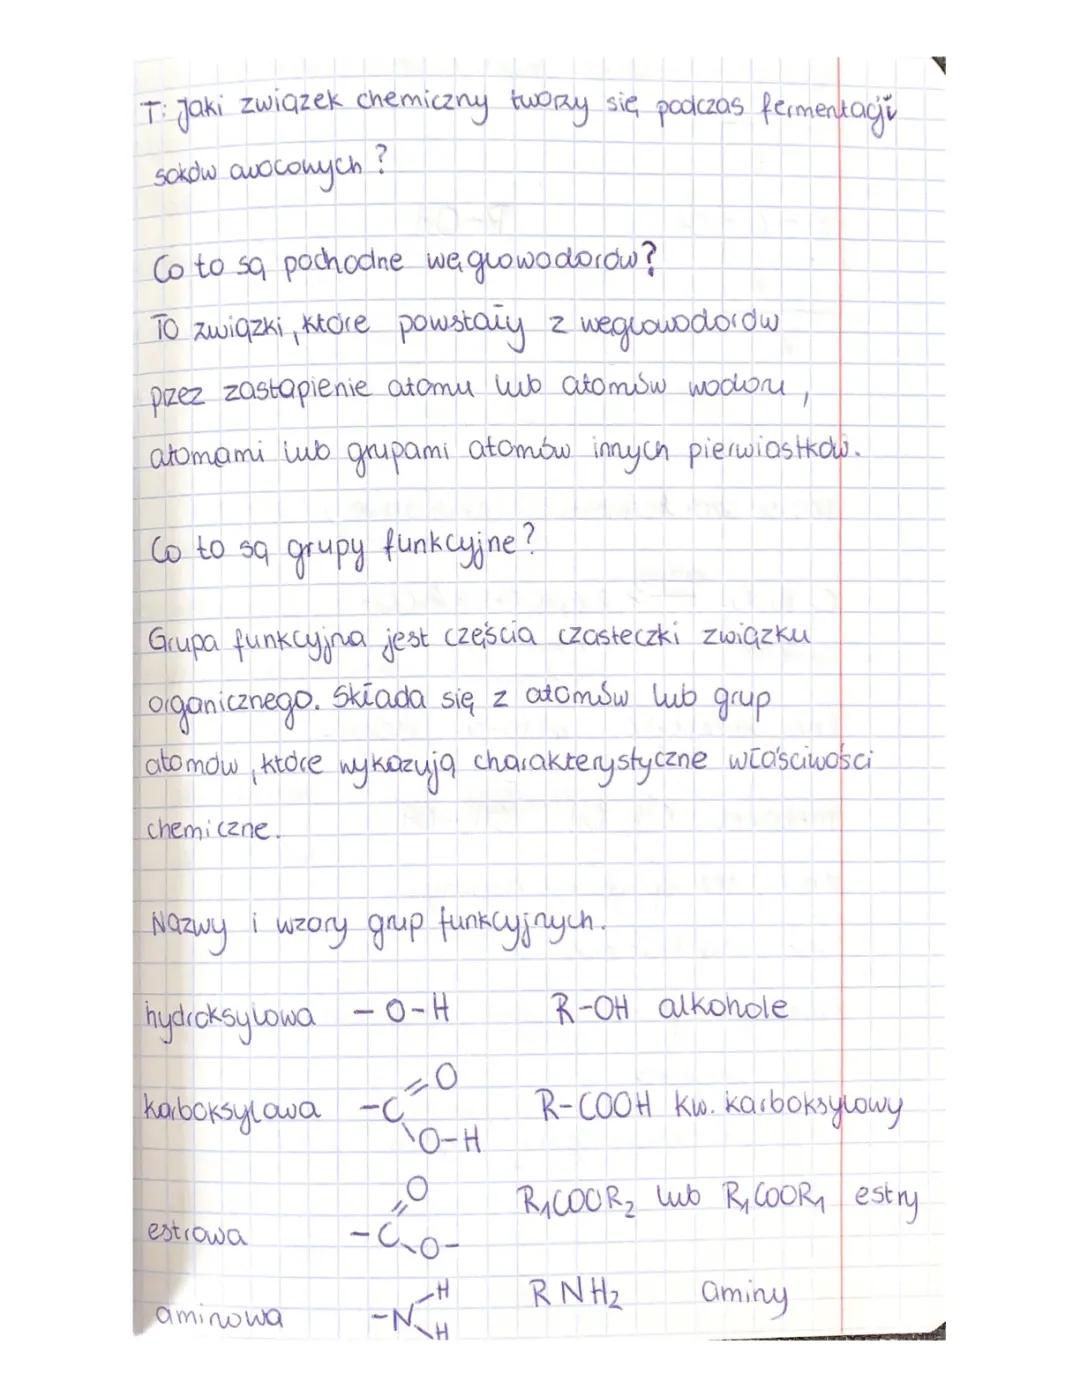 T: Jaki związek chemiczny tworzy się podczas fermentacji
soków owocowych?
Co to są pochodne węglowodorów?
To związki, które powstały z węglowodorów
przez zastąpienie atomu lub atomów wodoru,
atomami lub grupami atomów innych pierwiastków.
Co to są grupy funkcyjne?
Grupa funkcyjna jest częścia cząsteczki związku
organicznego. Składa się z atomów lub grup
atomów, które wykazują charakterystyczne właściwości
chemiczne.
Nazwy i wzory grup funkcyjnych.
hydroksylowa -O-H R-OH alkohole
karboksylowa -C=O \O-H R-COOH kw. karboksylowy
estrowa -C=O \O- R₁COOR₂ lub R₁COOR₁ estry
aminowa -N-H \H RNH₂ aminy